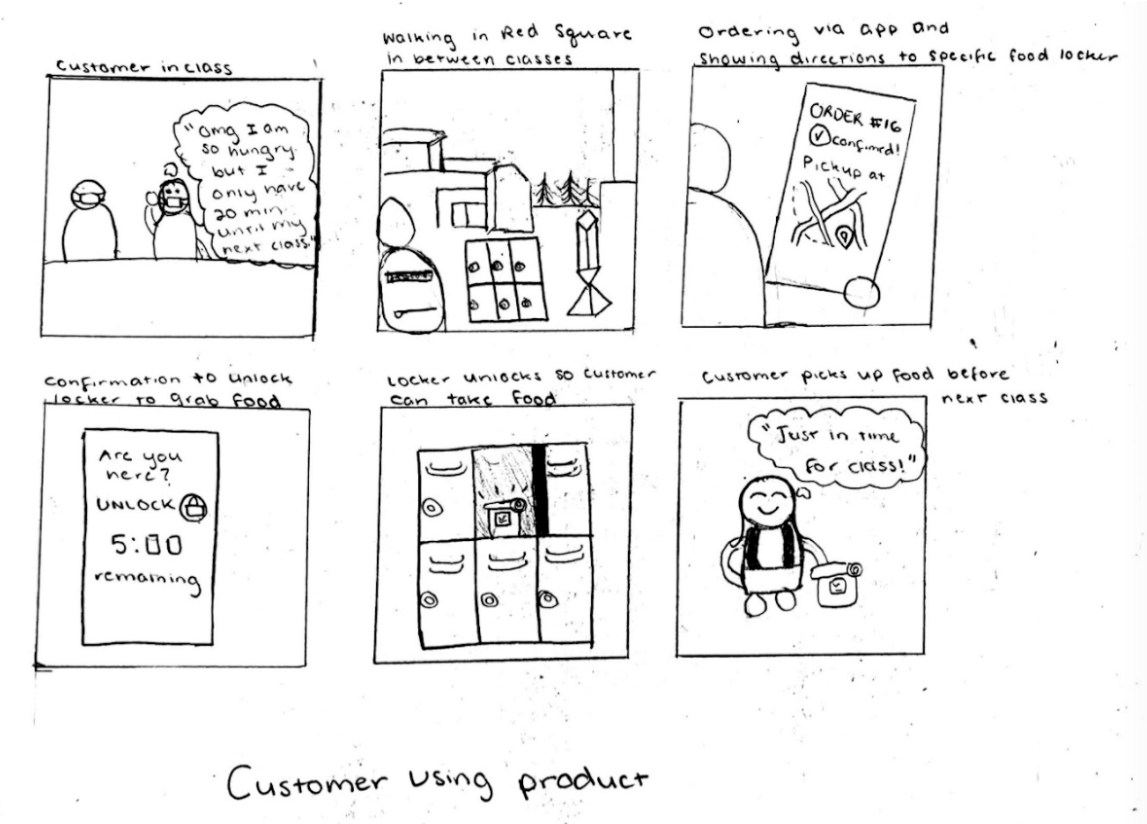 Customer in class
"omg I am
so hungry
but I
only have
20 min
until my
next class."
Walking in Red Square
in between classes
Ordering via app and
showing directions to specific food locker
ORDER #16
confirmed!
Pickup at
Confirmation to unlock
locker to grab food
Are you
here?
UNLOCK
5:00
remaining
Locker unlocks so customer
can take food
Customer picks up food before
next class
"Just in time
for class!"
Customer using product